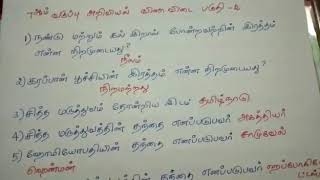 7ஆம் வகுப்பு அறிவியல் வினா விடை பகுதி-2
1) நண்டு மற்றும் கல் இறால் போன்றவற்றின் இரத்தம்
என்ன நிறமுடையது?
நீலம்
2) கரப்பான் பூச்சியின் இரத்தம் என்ன நிறமுடையது?
நிறமற்றது
3) சித்த மருத்துவம் தோன்றிய இடம் தமிழ்நாடு
4) சித்த மருத்துவத்தின் தந்தை எனப்படுபவர் அகத்தியர்
5) ஹோமியோபதியின் தந்தை எனப்படுபவர் சாமுவேல்
ஹெனிமன்
தந்தை எனப்படுபவர்